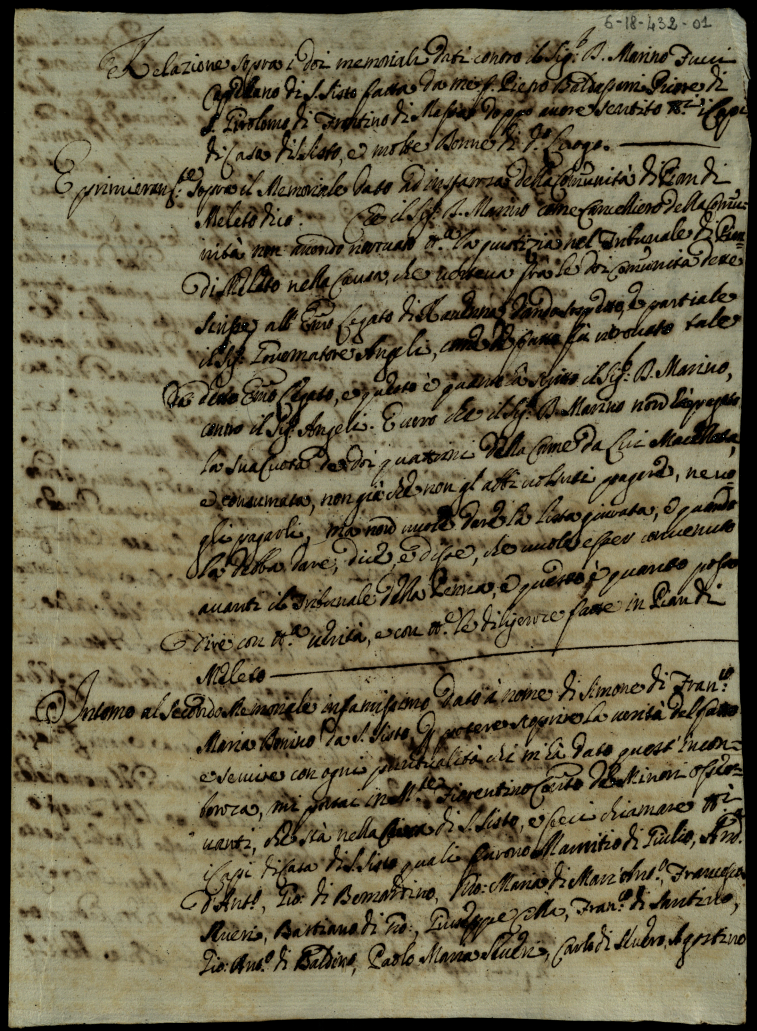 6-18-432-01
Relazione sopra i doi memoriali dati contro il Sig.r D. Marino Fucci
Capellano di S. Sisto fatta da me f. Pietro Baldassini Piore di
S. Girolomo di Frontino di doppo avere sentito tt.i i Capi
di Casa di S. Sisto, e molte Donne di d.o Luogo.
E primieram.te sopra il Memoriale dato ad instanza della Comunità di Pian di
Meleto dico. Che il Sig.r D. Marino come Cancelliero della Comu-
nità non avendo trovato tt.a la giustizia nel Tribunale di Pian
di Meleto nella Causa, che verteva frà le doi Comunità
scrisse all' Emo Legato di e partiale
il Sig.r Governatore Angeli, fù trovato tale
da detto Emo Legato, e questo è quanto à il Sig.r D. Marino,
contro il Sig.r Angeli. E vero che il Sig.r D. Marino non hà pagato
la sua de doi quattrini della Carne da Lui Macellata,
e consumata, non già che non gl' abbi voluti pagare, ne vo-
gli pagarli, mà non vuole dare la lista giurata, e quando
la debba dare, dice, e disse, che vuole esser convenuto
avanti il Tribunale della Penna, e questo è quanto posso
dire con tt.a verità, e con tt.e le diligenze fatte in Pian di
Meleto
Intorno al secondo Memoriale infamissimo dato à nome di Simone di Fran.co
Maria Bonino da S. Sisto p. potere scoprire la verità del fatto
e servire con ogni puntualità chi m' hà dato quest' incom-
benza, mi portai in M.te Fiorentino Con.to de Minori
vanti, che stà nella Cura di S. Sisto, e feci chiamare tt.i
i Capi di Casa di S. Sisto quali furono Mauritio di Giulio,
d' Ant.o, Gio: di Bernardino, Gio: Maria di Mar' Ant.o, Francesco
Bastiano di Gio:, Giuseppe Fran.co di Santino,
Gio: Ant.o di Baldino, Paolo Maria Carlo di Agostino